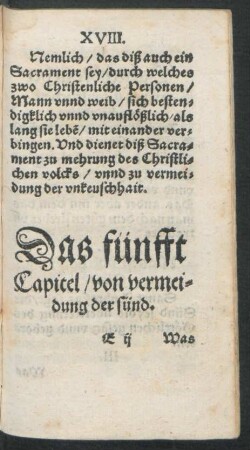 XVIII.
Nemlich / das diß auch ein
Sacrament sey / durch welches
zwo Christenliche Personen /
Mann vnnd weib / sich besten-
digklich vnnd vnauflößlich / als
lang sie lebẽ / mit einander ver-
bingen. Vnd dienet diß Sacra-
ment zu mehrung des Christli-
chen volcks / vnnd zu vermei-
dung der vnkeuschhait.
Das fünfft
Capitel / von vermei-
dung der sünd.
E ij Was